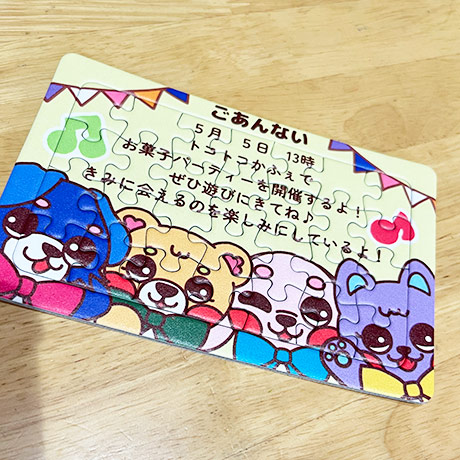 ごあんない
5月 5日 13時
トコトコかふぇで
お菓子パーティーを開催するよ！
ぜひ遊びにきてね♪
きみに会えるのを楽しみにしているよ！